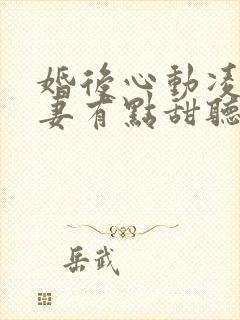 婚後心動凌
妻有點甜聽
岳武